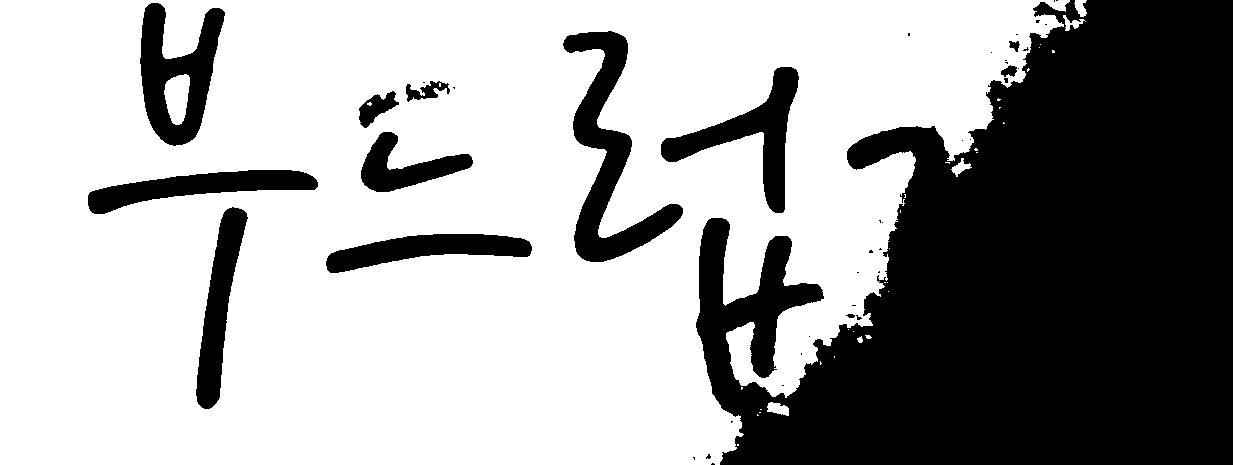 부드럽